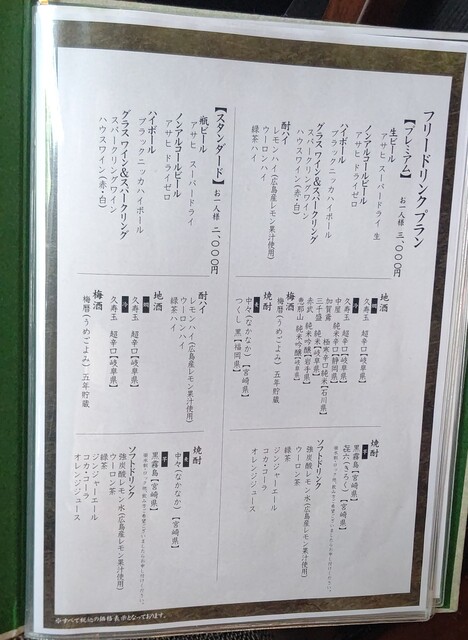 フリードリンクプラン
【プレミアム】 お一人様 三、〇〇〇円
生ビール
アサヒ スーパードライ 生
ノンアルコールビール
アサヒ ドライゼロ
ハイボール
ブラックニッカハイボール
グラスワイン&スパークリング
スパークリングワイン
ハウスワイン(赤・白)
酎ハイ
レモンハイ(広島産レモン果汁使用)
ウーロンハイ
緑茶ハイ
地酒
久寿玉 超辛口【岐阜県】
久寿玉 超辛口【岐阜県】
中屋 純米辛口【静岡県】
加賀鳶 極寒辛口純米【石川県】
三千盛 純米【岐阜県】
赤武 純米吟醸【岩手県】
恵那山 純米吟醸【岐阜県】
梅酒
梅暦(うめごよみ)五年貯蔵
焼酎
麦
中々(なかなか)【宮崎県】
つくし 黒【福岡県】
焼酎
芋
㐂六(きろく)【宮崎県】
黒霧島【宮崎県】
ソフトドリンク
強炭酸レモン水(広島産レモン果汁使用)
ウーロン茶
緑茶
ジンジャーエール
コカ・コーラ
オレンジジュース
【スタンダード】 お一人様 二、〇〇〇円
瓶ビール
アサヒ スーパードライ
ノンアルコールビール
アサヒ ドライゼロ
ハイボール
ブラックニッカハイボール
グラスワイン&スパークリング
スパークリングワイン
ハウスワイン(赤・白)
酎ハイ
レモンハイ(広島産レモン果汁使用)
ウーロンハイ
緑茶ハイ
地酒
久寿玉 超辛口【岐阜県】
久寿玉 超辛口【岐阜県】
梅酒
梅暦(うめごよみ)五年貯蔵
焼酎
麦
中々(なかなか)【宮崎県】
芋
黒霧島【宮崎県】
ソフトドリンク
強炭酸レモン水(広島産レモン果汁使用)
ウーロン茶
緑茶
ジンジャーエール
コカ・コーラ
オレンジジュース
※すべて税込の価格表示となっております。